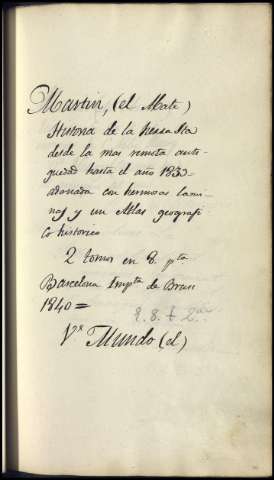 Martin, (el Mate)
Historia de la Russa Ita
desde la mas remota anti-
guedad hasta el año 1830
adornada con hermosas lami-
nas y un Atlas geografi
co historico
2 tomos en 8. pta
Barcelona Impta de Brusi
1840=
Vr Mundo (el)